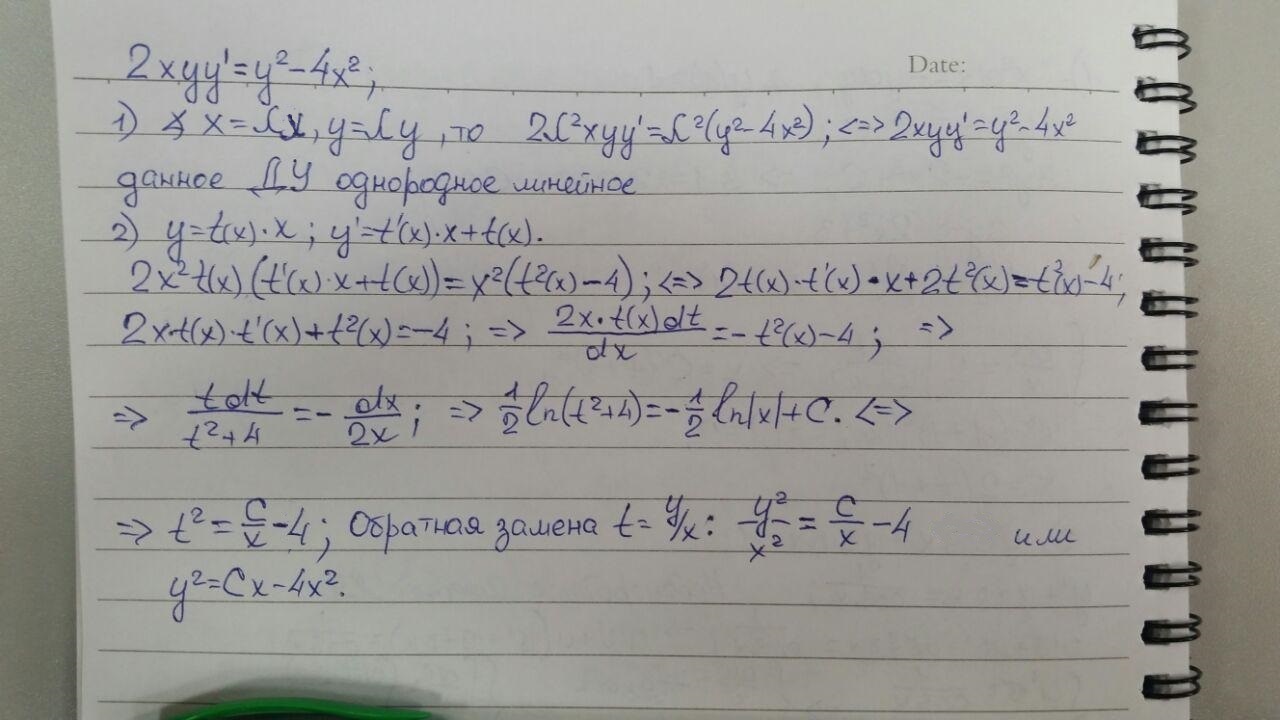 2xyy'=y²-4x²;
Date:
1) ∢ x=λx, y=λy, то 2λ²xyy'=λ²(y²-4x²); <=> 2xyy'=y²-4x²
данное ДУ однородное линейное
2) y=t(x)·x; y'=t'(x)·x+t(x).
2x²t(x)(t'(x)·x+t(x))=x²(t²(x)-4); <=> 2t(x)·t'(x)·x+2t²(x)=t²(x)-4;
2x·t(x)·t'(x)+t²(x)=-4; => 2x·t(x)dt/dx=-t²(x)-4; =>
=> tdt/t²+4=-dx/2x; => 1/2 ln(t²+4)=-1/2 ln|x|+C. <=>
=> t²=C/x-4; Обратная замена t=y/x: y²/x²=C/x-4 или
y²=Cx-4x².